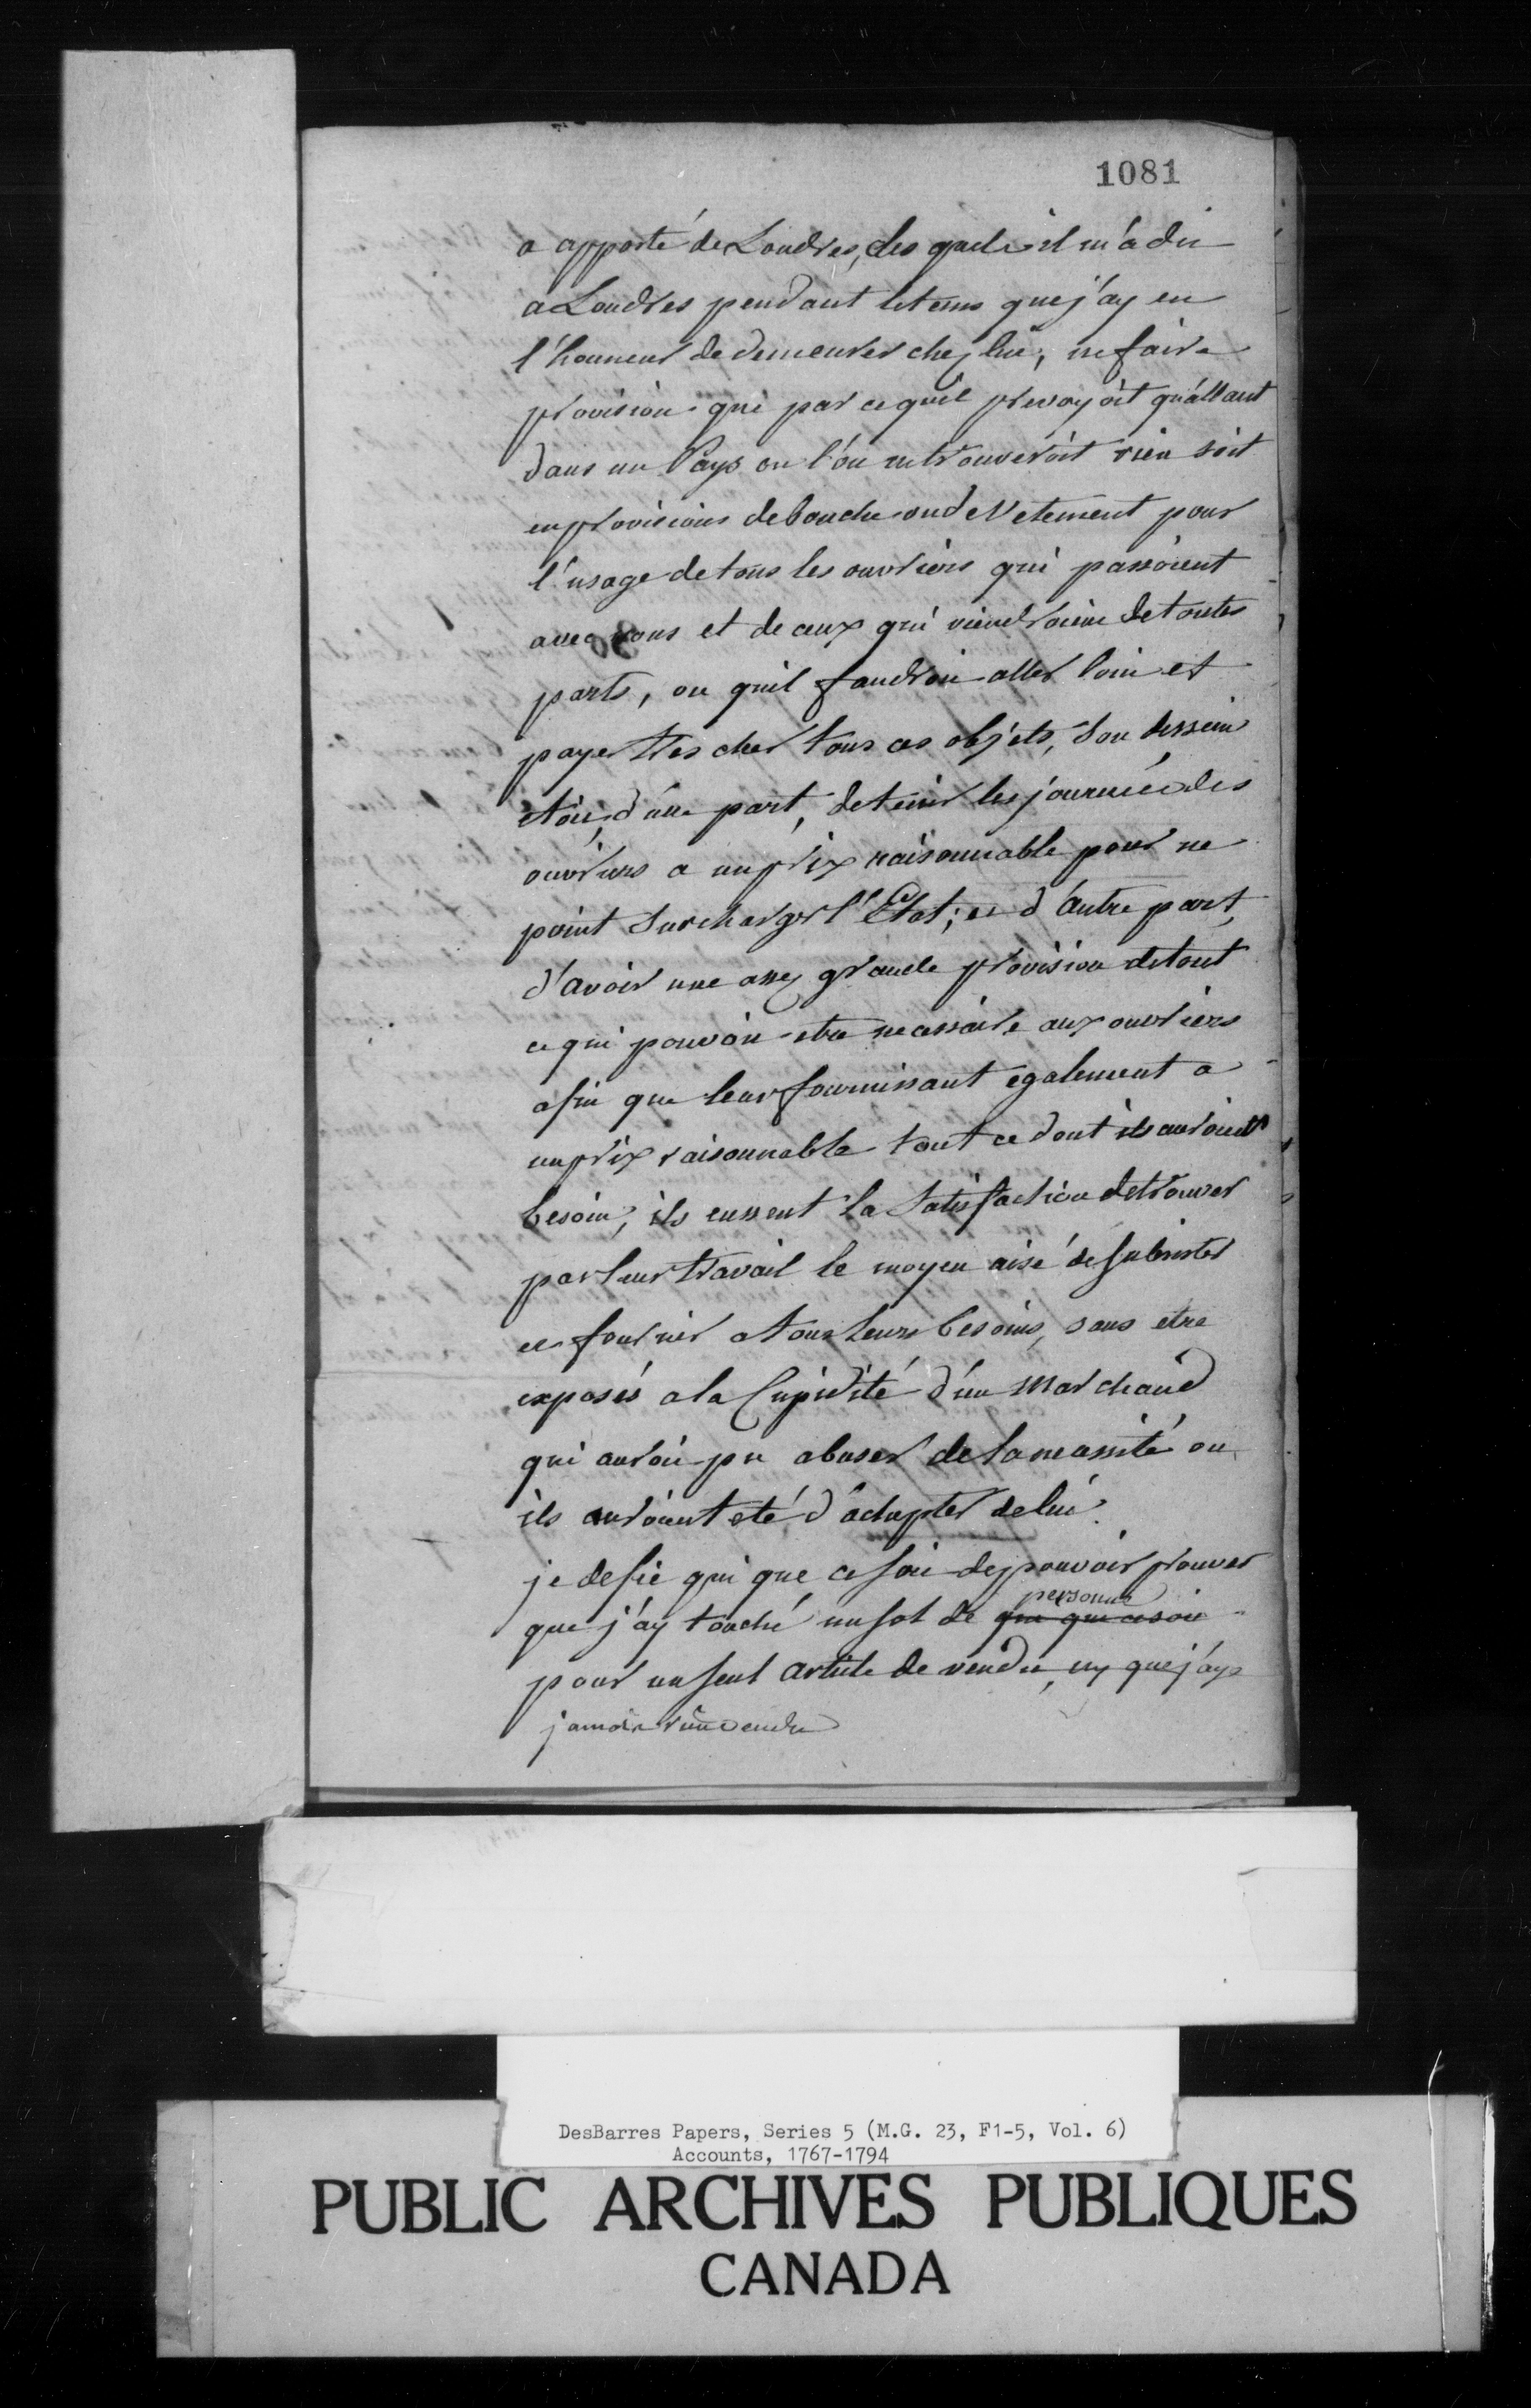 1081
a apporté de Londres, des quels il m'a dit
a Londres pendant le tems que j'ay eu
l'honneur de demeurer chez lui, ne faire
provision que par ce qu'il prevoyoit qu'allant
dans un Pays ou l'on ne trouveroit rien soit
en provisions de bouche ou de Vetement pour
l'usage de tous les ouvriers qui passoient
avec nous et de ceux qui viendroient de toutes
parts, ou qu'il faudroit aller loin et
payer tres cher tous ces objets, Son dessein
etoit, d'une part, de tenir les journées des
ouvriers a un prix raisonnable pour ne
point Surcharger l'Etat; et d'autre part,
d'avoir une assez grande provision de tout
ce qui pouvoit etre necessaire aux ouvriers
afin que leur fournissant egalement a
un prix raisonnable tout ce dont ils auroient
besoin, ils eussent la Satisfaction de trouver
par leur travail le moyen aisé de Subsister
et fournir a tous leurs besoins, sans etre
exposés a la Cupidité d'un Marchand
qui auroit pu abuser de la necessité ou
ils auroient eté d'achepter de lui.
je defie qui que ce soit de pouvoir prouver
personne
que j'ay touché un sol de qui que ce soit
pour un seul article de vendu, ny que j'aye
jamais rien vendu
DesBarres Papers, Series 5 (M.G. 23, F1-5, Vol. 6)
Accounts, 1767-1794
PUBLIC ARCHIVES PUBLIQUES
CANADA